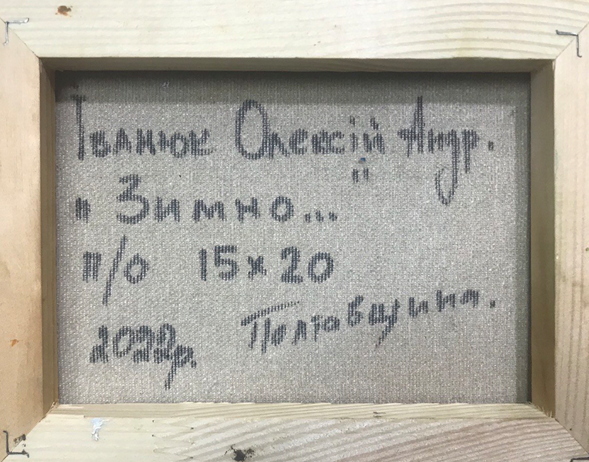 Іванюк Олексій Андр.
"Зимно..."
п/о 15х20
2022р. Полтавщина.